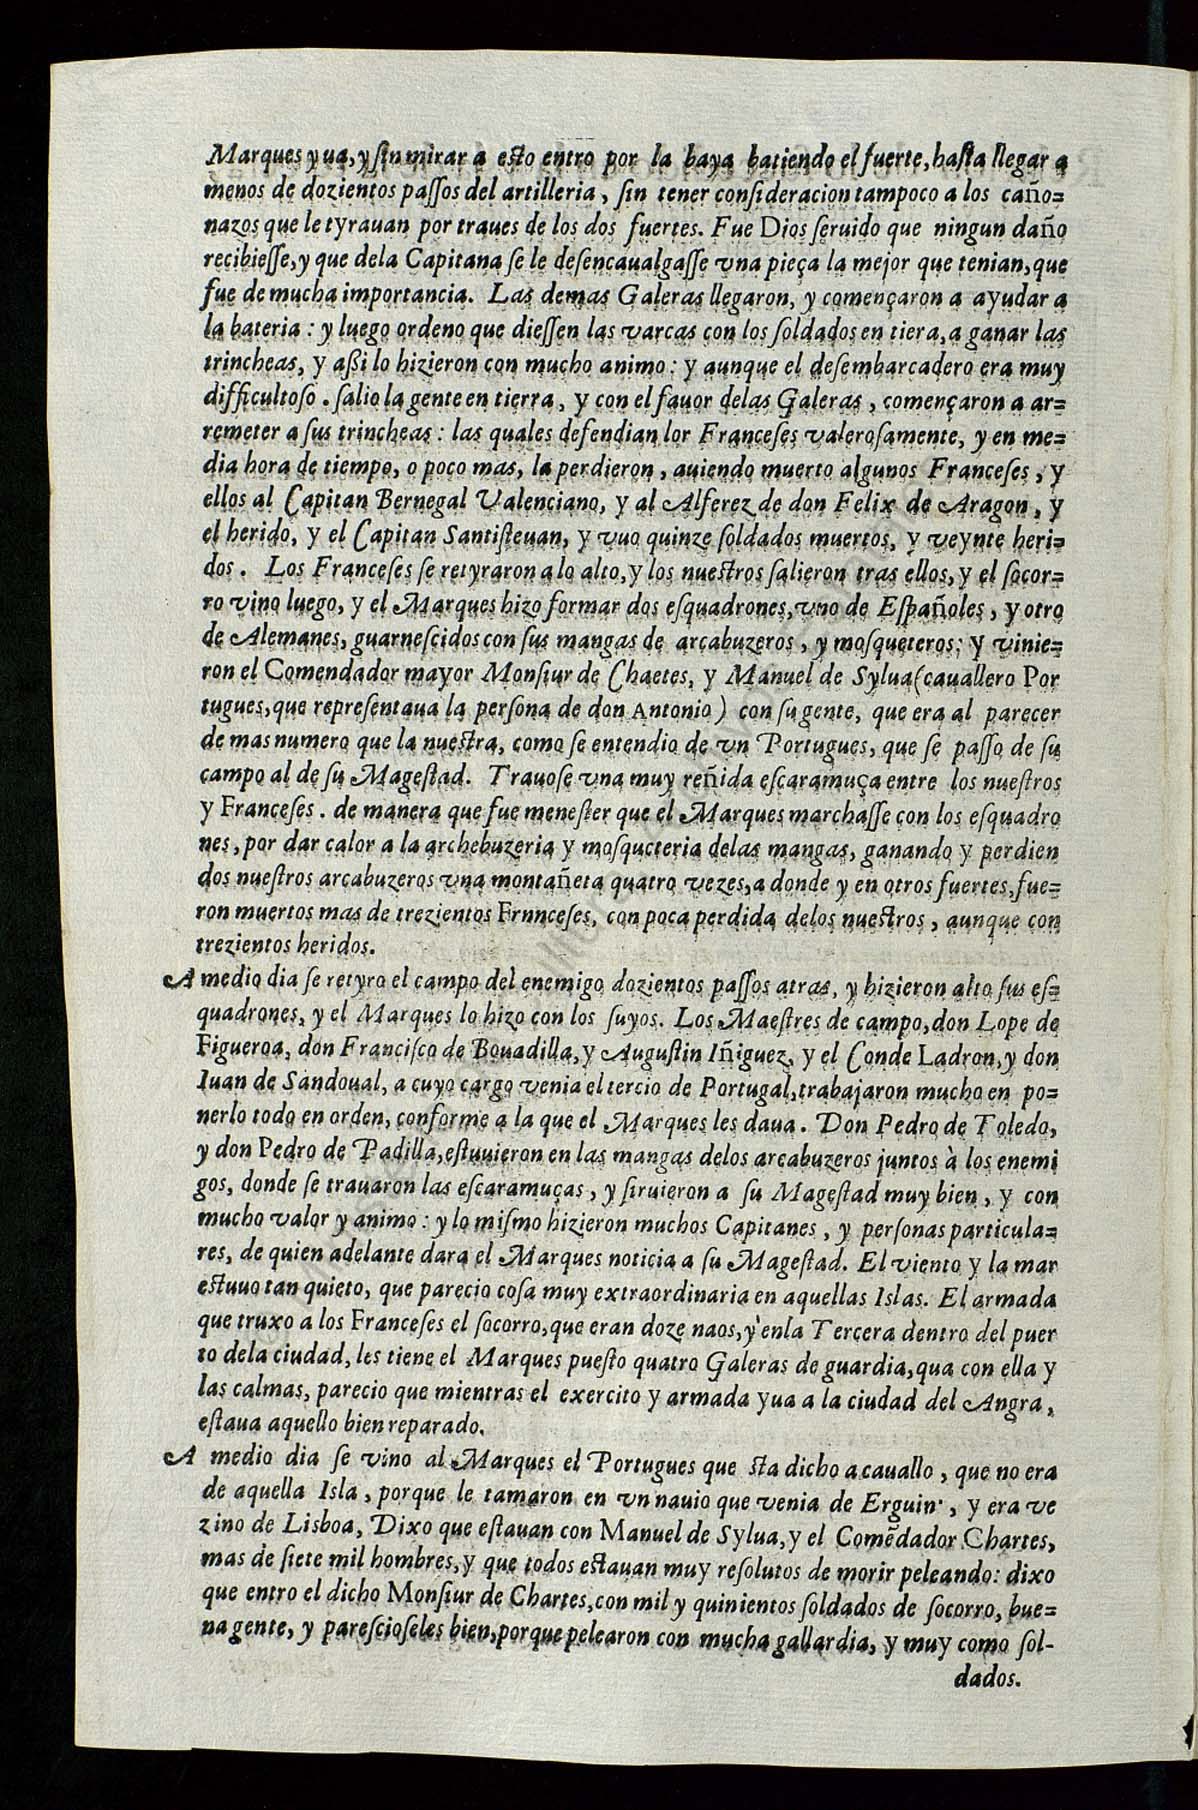 Marques yua, y ſin mirar a esto entro por la baya batiendo el fuerte, haſta llegar a
menos de dozientos paſſos del artilleria, ſin tener conſideracion tampoco a los caño=
nazos que le tyrauan por traues de los dos fuertes. Fue Dios ſeruido que ningun daño
recibieſſe, y que dela Capitana ſe le deſencaualgaſſe vna pieça la mejor que tenian, que
fue de mucha importancia. Las demas Galeras llegaron, y començaron a ayudar a
la bateria: y luego ordeno que dieſſen las varcas con los ſoldados en tiera, a ganar las
trincheas, y aßi lo hizieron con mucho animo: y aunque el deſembarcadero era muy
difficultoſo. ſalio la gente en tierra, y con el fauor delas Galeras, començaron a ar=
remeter a ſus trincheas: las quales defendian lor Franceſes valeroſamente, y en me=
dia hora de tiempo, o poco mas, la perdieron, auiendo muerto algunos Franceſes, y
ellos al Capitan Bernegal Valenciano, y al Alferez de don Felix de Aragon, y
el herido, y el Capitan Santiſteuan, y vuo quinze ſoldados muertos, y veynte heri=
dos. Los Franceſes ſe retyraron a lo alto, y los nueſtros ſalieron tras ellos, y el ſocor=
ro vino luego, y el Marques hizo formar dos eſquadrones, vno de Eſpañoles, y otro
de Alemanes, guarneſcidos con ſus mangas de arcabuzeros, y moſqueteros; y vinie=
ron el Comendador mayor Monſiur de Chaetes, y Manuel de Sylua (cauallero Por
tugues, que repreſentaua la perſona de don Antonio) con ſu gente, que era al parecer
de mas numero que la nuestra, como ſe entendio de vn Portugues, que ſe paſſo de ſu
campo al de ſu Mageſtad. Trauoſe vna muy reñida eſcaramuça entre los nueſtros
y Franceſes. de manera que fue meneſter que el Marques marchaſſe con los eſquadro
nes, por dar calor a la archebuzeria y moſqucteria delas mangas, ganando y perdien
dos nueſtros arcabuzeros vna montañeta quatro vezes, a donde y en otros fuertes, fue=
ron muertos mas de trezientos Frnnceſes, con poca perdida delos nueſtros, aunque con
trezientos heridos.
A medio dia ſe retyro el campo del enemigo dozientos paſſos atras, y hizieron alto ſus eſ=
quadrones, y el Marques lo hizo con los ſuyos. Los Maeſtres de campo, don Lope de
Figueroa, don Franciſco de Bouadilla, y Auguſtin Iñiguez, y el Conde Ladron, y don
Iuan de Sandoual, a cuyo cargo venia el tercio de Portugal, trabajaron mucho en po=
nerlo todo en orden, conforme a la que el Marques les daua. Don Pedro de Toledo,
y don Pedro de Padilla, eſtuuieron en las mangas delos arcabuzeros juntos à los enemi
gos, donde ſe trauaron las eſcaramuças, y ſiruieron a ſu Mageſtad muy bien, y con
mucho valor y animo: y lo miſmo hizieron muchos Capitanes, y perſonas particula=
res, de quien adelante dara el Marques noticia a ſu Mageſtad. El viento y la mar
estuuo tan quieto, que parecio coſa muy extraordinaria en aquellas Islas. El armada
que truxo a los Franceſes el ſocorro, que eran doze naos, y enla Tercera dentro del puer
to dela ciudad, les tiene el Marques pueſto quatro Galeras de guardia, qua con ella y
las calmas, parecio que mientras el exercito y armada yua a la ciudad del Angra,
eſtaua aquello bien reparado.
A medio dia ſe vino al Marques el Portugues que ſta dicho a cauallo, que no era
de aquella Isla, porque le tamaron en vn nauio que venia de Erguin, y era ve
zino de Lisboa, Dixo que eſtauan con Manuel de Sylua, y el Comẽdador Chartes,
mas de ſiete mil hombres, y que todos estauan muy reſolutos de morir peleando: dixo
que entro el dicho Monſiur de Chartes, con mil y quinientos ſoldados de ſocorro, bue=
na gente, y pareſcioſeles bien, porque pelearon con mucha gallardia, y muy como ſol-
dados.